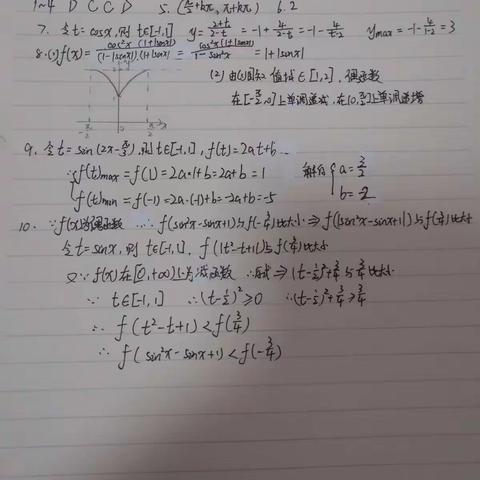 1~4 D C C D 5. (π/2+kπ, π+kπ) 6. 2
7. 令t=cosx,则 t∈[-1,1] y=(2+t)/(2-t)=-1+4/(2-t)=-1-4/(t-2) ymax=-1-4/(1-2)=3
8.(1)f(x)=cos²x(1+|sinx|)/(1-|sinx|)(1+|sinx|)=cos²x(1+|sinx|)/1-sin²x=1+|sinx|
(2)由(1)图知 值域∈[1,2],偶函数
在[-π/2,0]上单调递减,在[0,π/2]上单调递增
-π/2 0 π/2 x
9. 令t=sin(2x-π/3),则t∈[-1,1],f(t)=2at+b
∵{f(t)max=f(1)=2a·1+b=2a+b=1
f(t)min=f(-1)=2a·(-1)+b=-2a+b=-5
解得{a=3/2
b=-2
10. ∵f(x)为偶函数 ∴f(sin²x-sinx+1)与f(-3/4)比大小⇒f(|sin²x-sinx+1|)与f(3/4)比大小
令t=sinx,则 t∈[-1,1], f(|t²-t+1|)与f(3/4)比大小
又∵f(x)在[0,+∞)上为减函数 ∴⇒(t-1/2)²+3/4与3/4比大小
∵ t∈[-1,1] ∴(t-1/2)²≥0 ∴(t-1/2)²+3/4≥3/4
∴ f(t²-t+1)<f(3/4)
∴ f(sin²x-sinx+1)<f(-3/4)